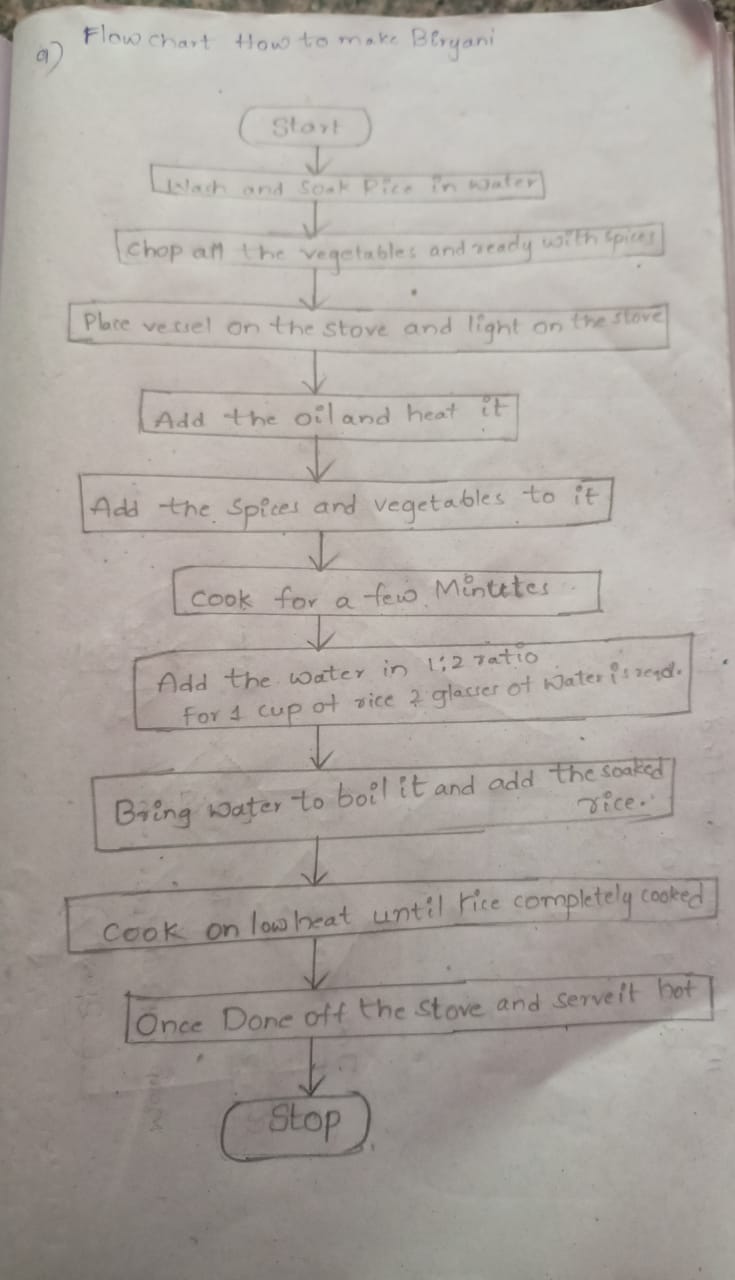 a) Flow chart How to make Biryani
Start
Wash and Soak Rice in water
Chop all the vegetables and ready with spices
Place vessel on the stove and light on the stove
Add the oil and heat it
Add the Spices and vegetables to it
Cook for a few Minutes
Add the water in 1:2 ratio
For 1 cup of rice 2 glasses of water is
Bring water to boil it and add the soaked
rice.
Cook on low heat until rice completely cooked
Once Done off the stove and serve it hot
Stop